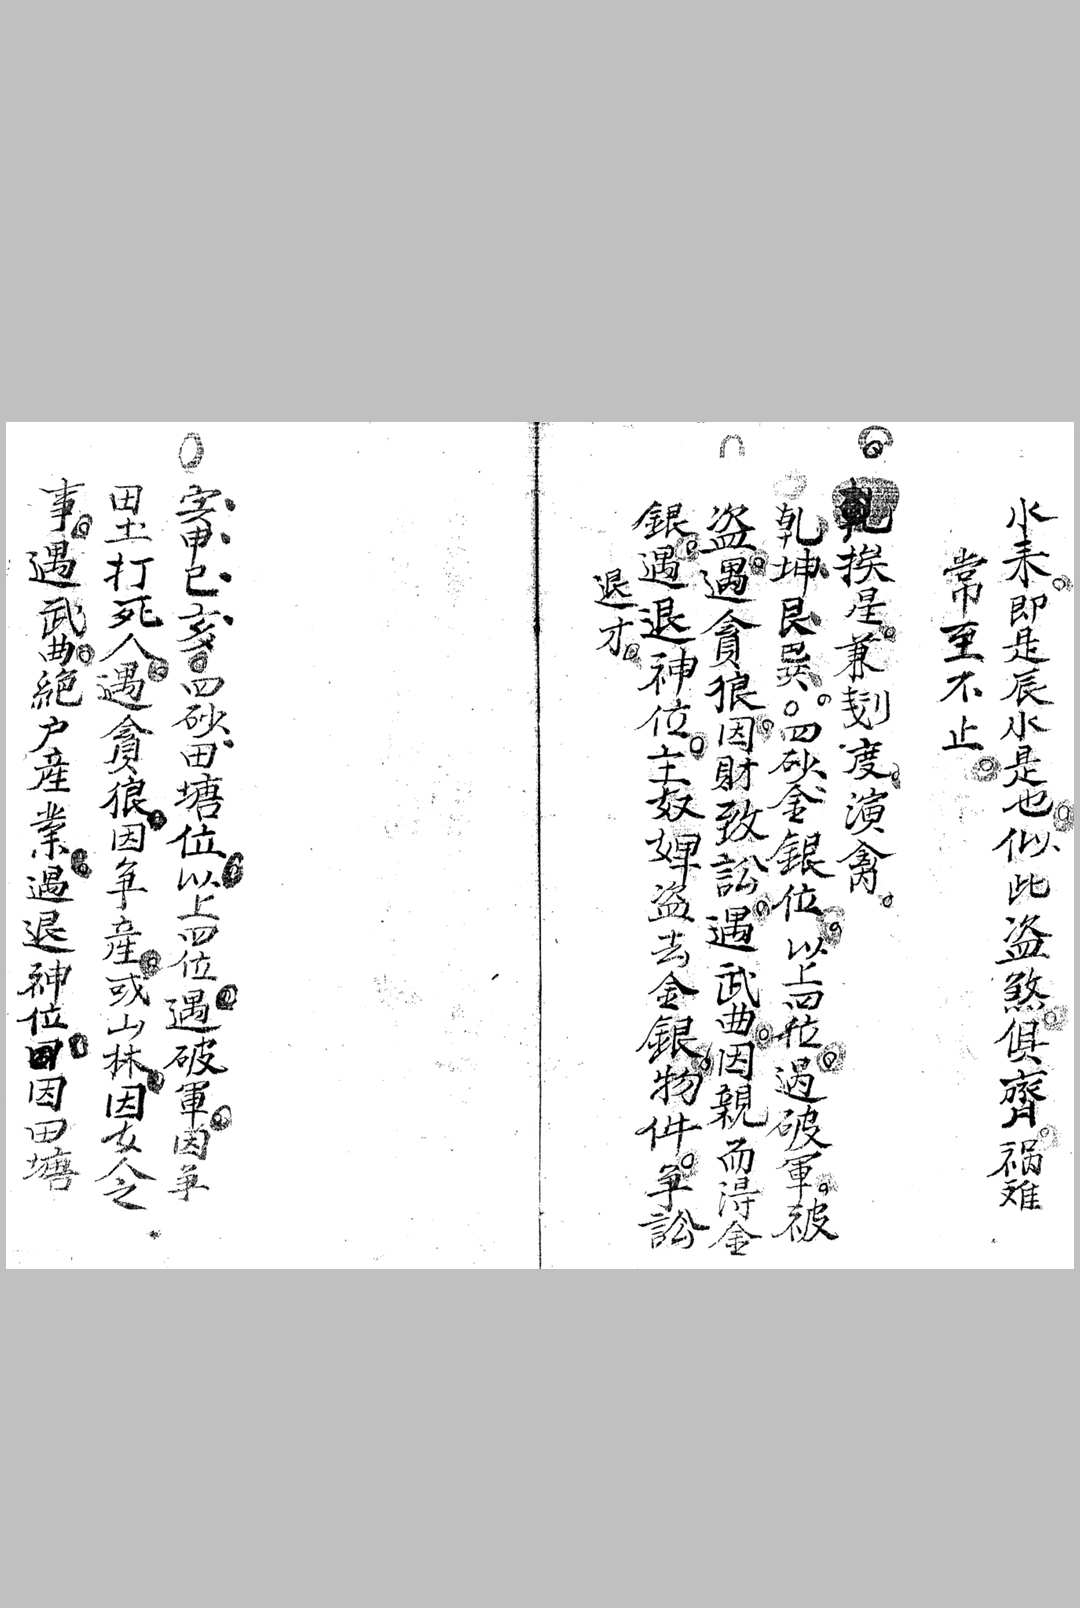 水耒即是辰水是也似此盗煞俱齊禍难
常至不止
乹挨星兼刻度演禽
乹坤艮巽四砂金銀位以上四位遇破軍被
盗遇貪狼因財致訟遇武曲因親而得金
銀遇退神位主奴婢盗去金銀物件争訟
退才
寅申巳亥四砂田塘位以上四位遇破軍因争
田土打死人遇貪狼因争産或山林因女人之
事遇武曲絕户産業遇退神位因田塘